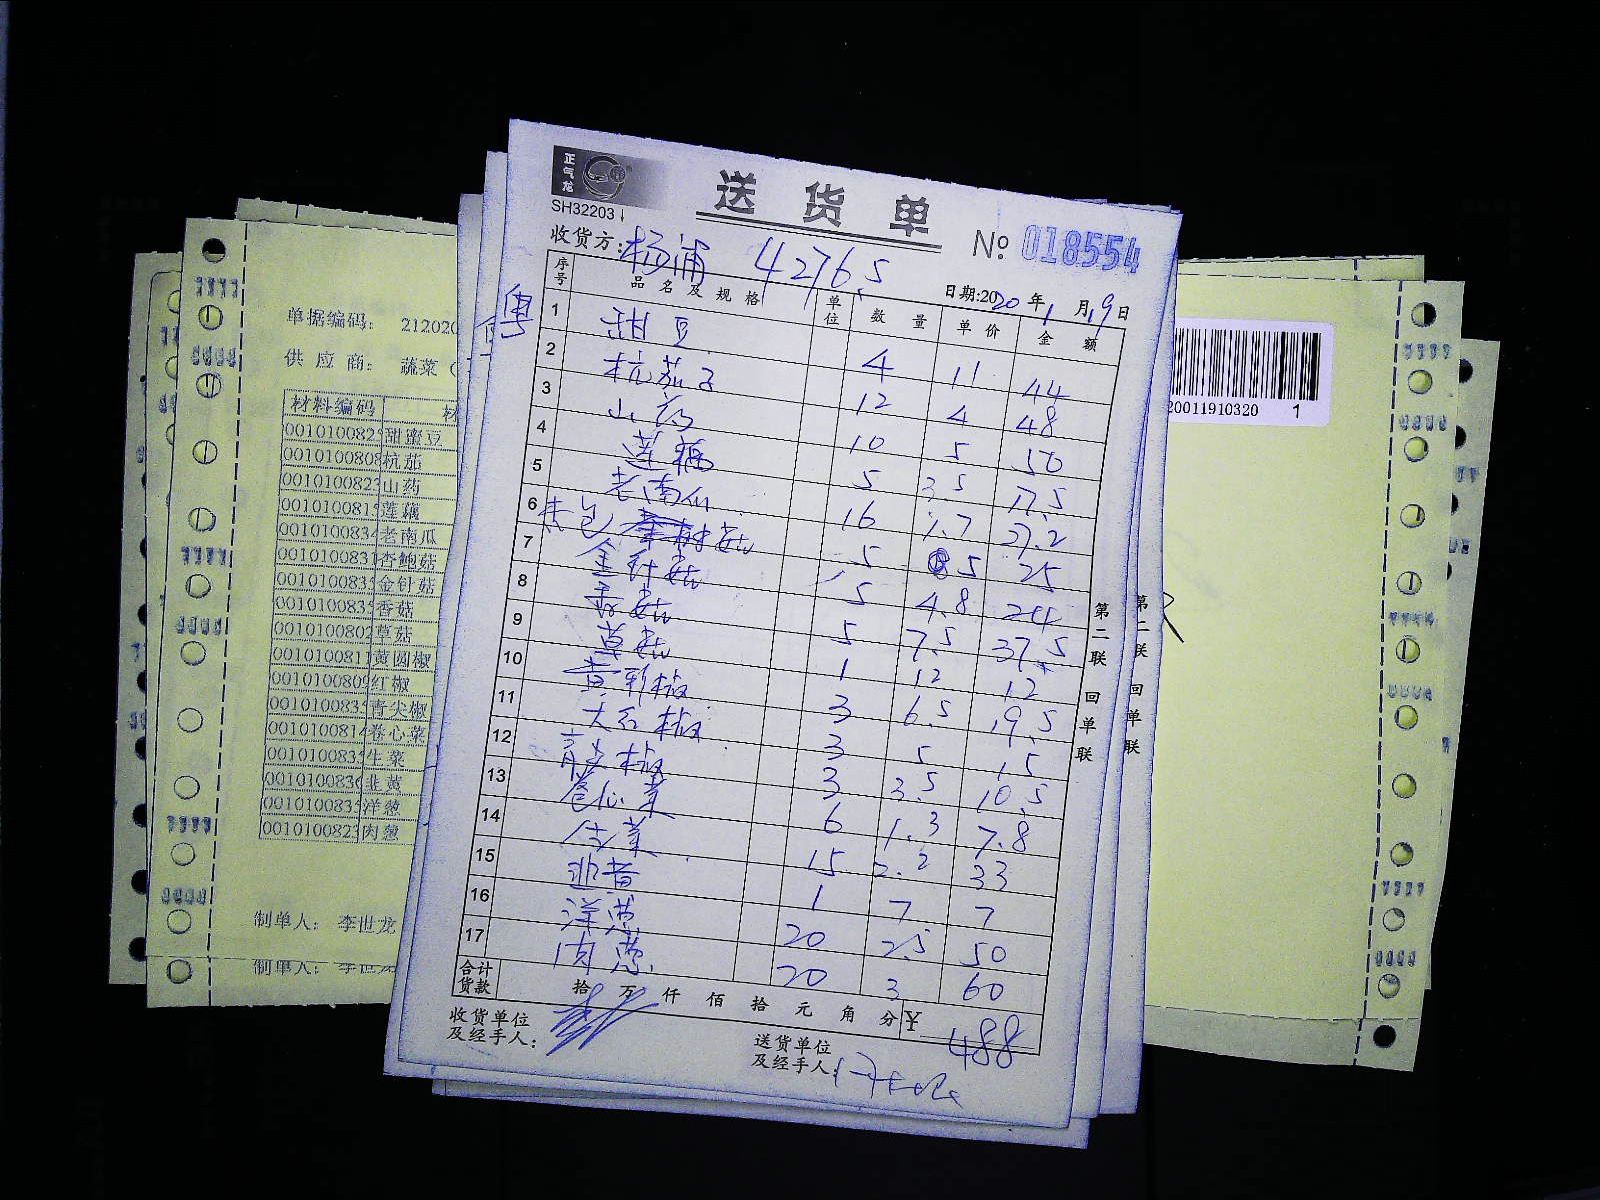 正气龙
送 货 单
SH32203
№ 018554
收货方: 杨浦 4276.5
日期:2020 年 1 月 19 日
粤
序号 品 名 及 规 格 单位 数 量 单 价 金 额
1 甜豆 4 11 44
2 杭茄子 12 4 48
3 山药 10 5 50
4 莲藕 5 3.5 17.5
5 老南瓜 16 1.7 27.2
6 杏包菇 5 5 25
7 金针菇 5 4.8 24
8 香菇 5 7.5 37.5
9 草菇 1 12 12
10 黄彩椒 3 6.5 19.5
11 大红椒 3 5 15
12 青尖椒 3 3.5 10.5
13 卷心菜 6 1.3 7.8
14 生菜 15 2.2 33
15 韭黄 1 7 7
16 洋葱 20 2.5 50
17 肉葱 20 3 60
合计货款 拾 万 仟 佰 拾 元 角 分 ¥ 488
收货单位及经手人:
送货单位及经手人:
第二联 回单联
第二联 回单联
单据编码: 212020
供 应 商: 蔬菜（
材料编码 材
0010100825 甜蜜豆
0010100808 杭茄
0010100823 山药
001010081 莲藕
0010100834 老南瓜
001010083 杏鲍菇
001010083 金针菇
001010083 香菇
0010100802 草菇
001010081 黄圆椒
0010100809 红椒
001010083 青尖椒
0010100814 卷心菜
001010083 生菜
001010083 韭黄
001010083 洋葱
0010100823 肉葱
制单人: 李世龙
制单人: 李世龙
20011910320 1